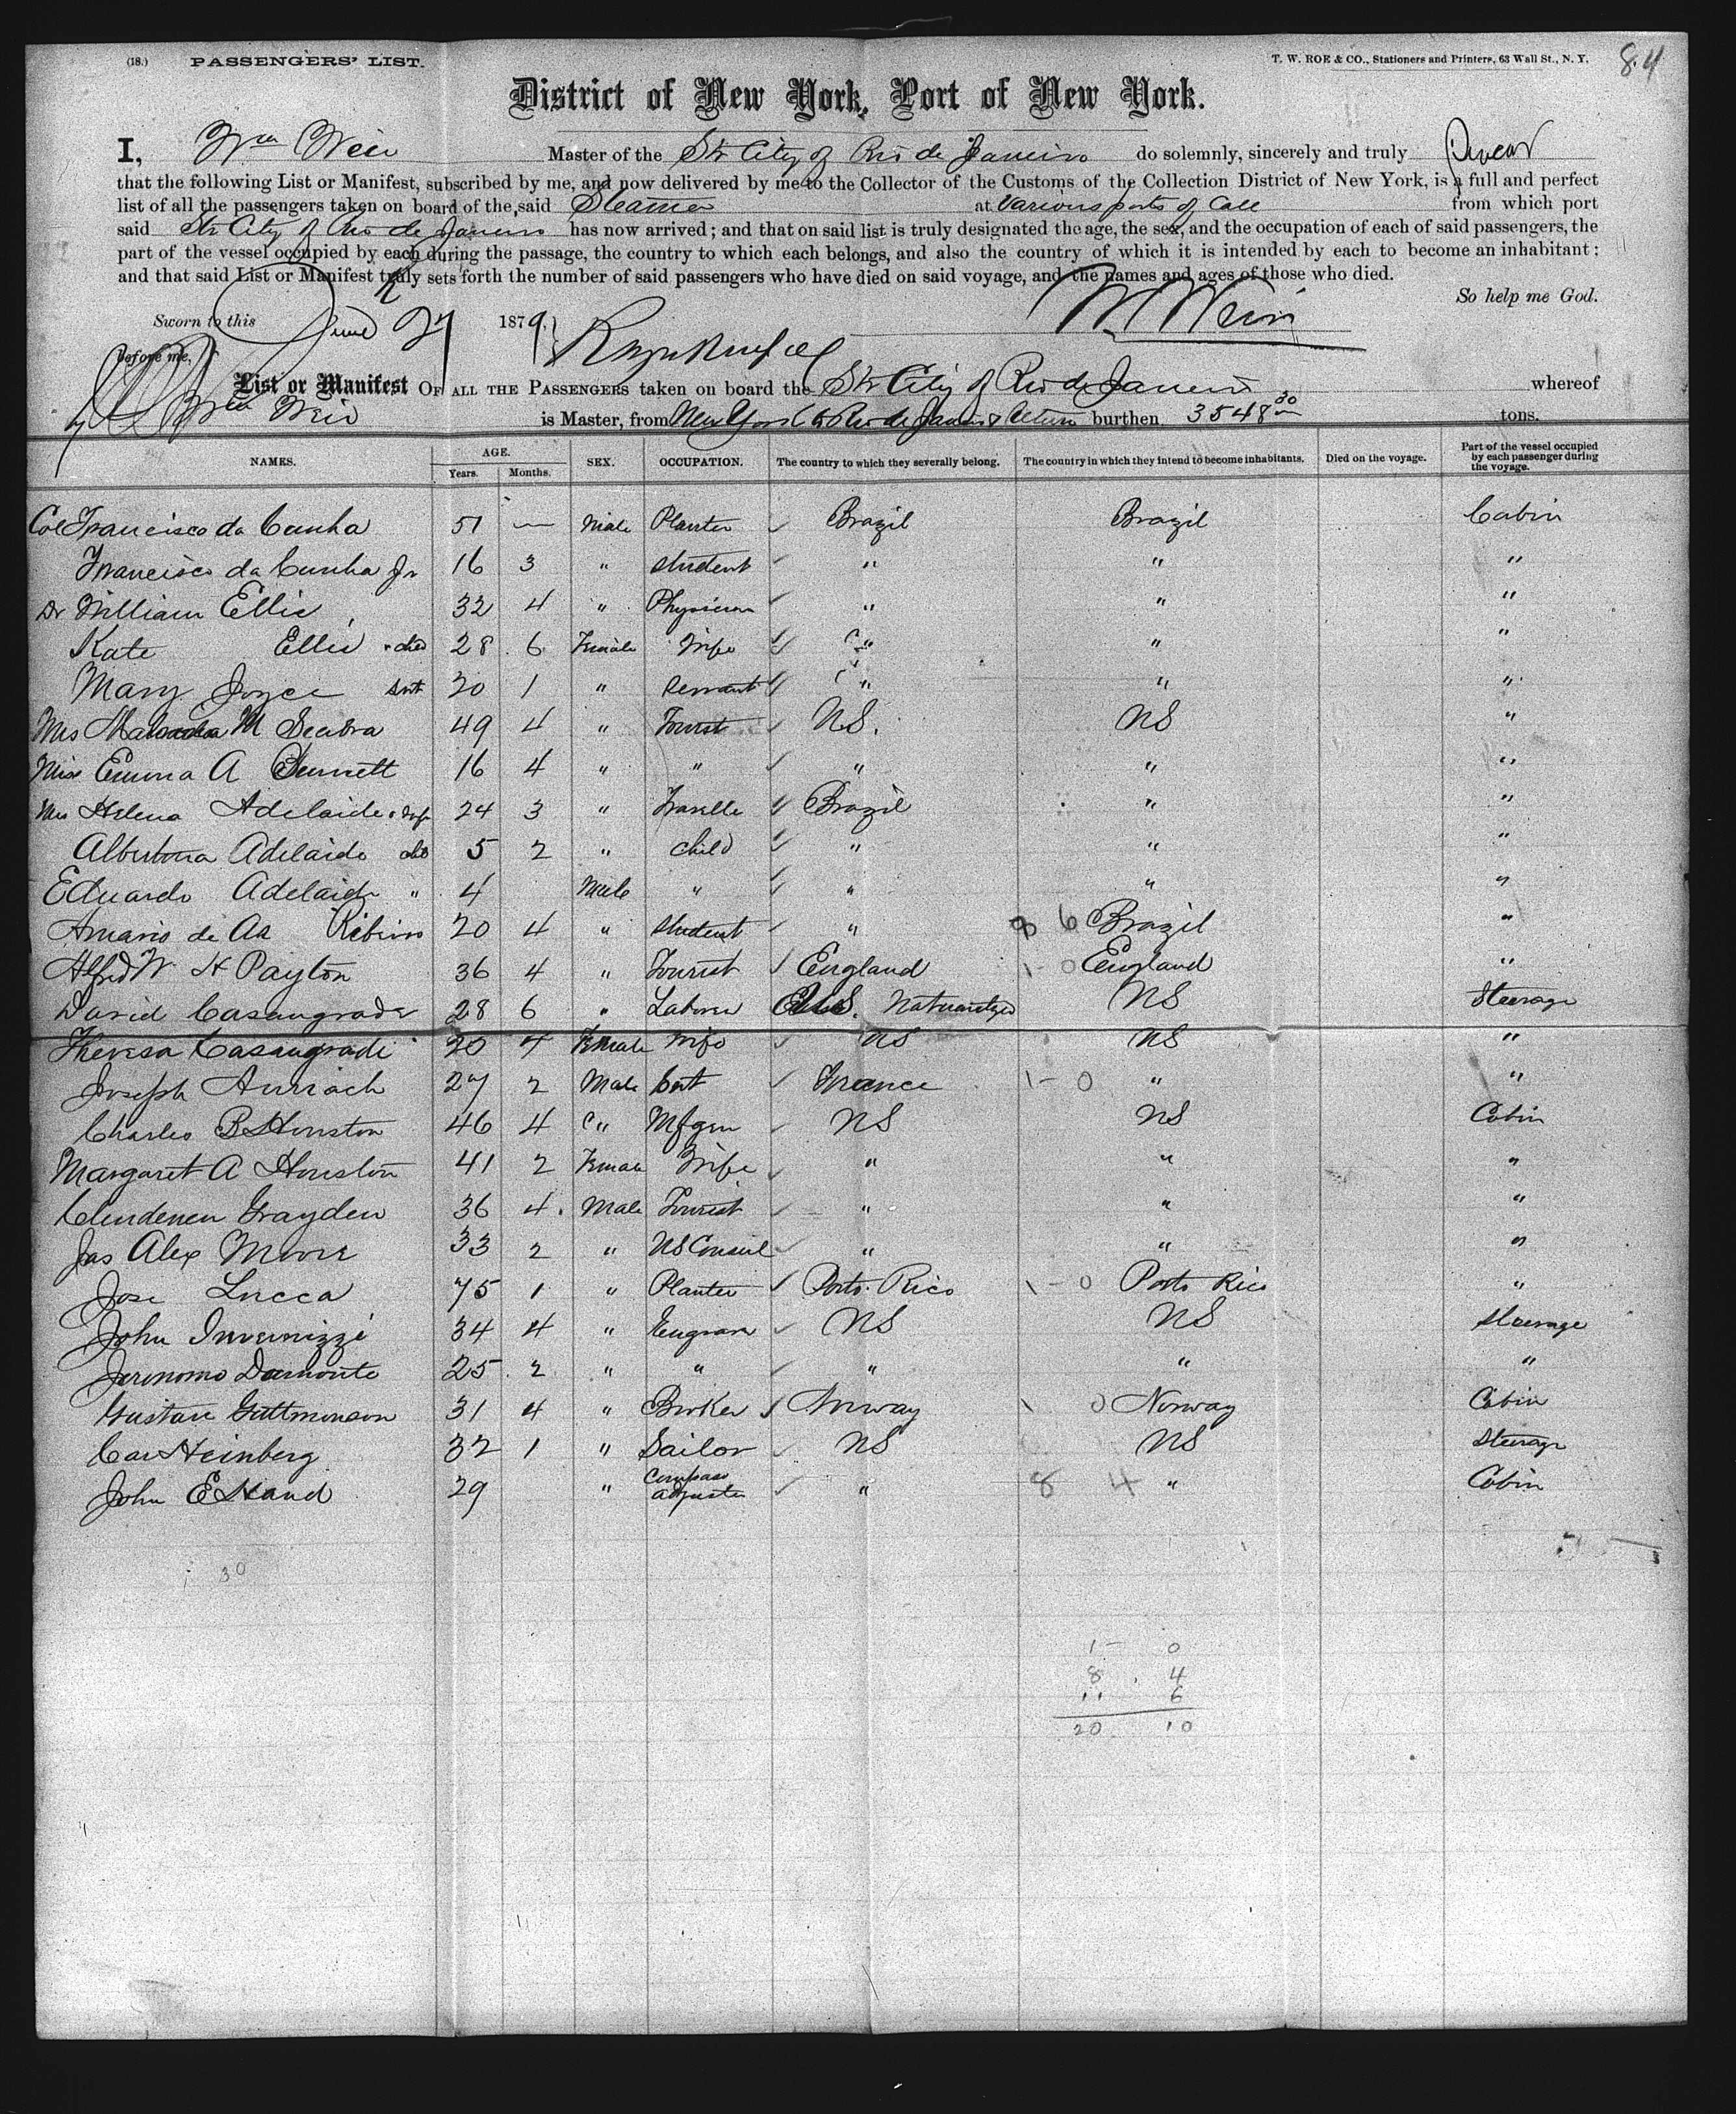 (18.) PASSENGERS' LIST. T. W. ROE & CO., Stationers and Printers, 63 Wall St., N. Y. 84
District of New York, Port of New York.
I, Wm Weir Master of the Str City of Rio de Janeiro do solemnly, sincerely and truly Swear
that the following List or Manifest, subscribed by me, and now delivered by me to the Collector of the Customs of the Collection District of New York, is a full and perfect
list of all the passengers taken on board of the said Steamer at Various ports of Call from which port
said Str City of Rio de Janeiro has now arrived; and that on said list is truly designated the age, the sex, and the occupation of each of said passengers, the
part of the vessel occupied by each during the passage, the country to which each belongs, and also the country of which it is intended by each to become an inhabitant;
and that said List or Manifest truly sets forth the number of said passengers who have died on said voyage, and the names and ages of those who died.
So help me God.
Sworn to this June 27 1879. W Weir
before me,
List or Manifest OF ALL THE PASSENGERS taken on board the Str City of Rio de Janeiro whereof
Wm Weir is Master, from New York to Rio de Janeiro & Return burthen 3548 30 tons.
NAMES. AGE. Years. Months. SEX. OCCUPATION. The country to which they severally belong. The country in which they intend to become inhabitants. Died on the voyage. Part of the vessel occupied by each passenger during the voyage.
Col Francisco da Cunha 51 — Male Planter Brazil Brazil Cabin
Francisco da Cunha Jr 16 3 " Student " " "
Dr William Ellis 32 4 " Physician " " "
Kate Ellis 28 6 Female Wife " " "
Mary Joyce Svt 20 1 " Servant " " "
Mrs M Seabra 49 4 " Tourist US. US "
Miss Emma A Burnett 16 4 " " " " "
Mrs Helena Adelaide 24 3 " Brazil " "
Adelaide 5 2 " Child " " "
Eduardo Adelaide " 4 Male " " " "
de Ribeiro 20 4 " Student " 8 6 Brazil "
Alfred W H Payton 36 4 " Tourist England 1-0 England "
David Casangrade 28 6 " Laborer U.S. Naturalized US Steerage
Theresa Casangradi 20 4 Female Wife US US "
Joseph 27 2 Male France 1-0 " "
Charles B Houston 46 4 " US US Cabin
Margaret A Houston 41 2 Female Wife " " "
Clendenen Grayden 36 4 Male Tourist " " "
Jas Alex Moore 33 2 " US Consul " " "
Jose Lucca 75 1 " Planter Porto Rico 1-0 Porto Rico "
John Invernizzi 34 4 " Engraver US US Steerage
Jeronomo Damonte 25 2 " " " " "
Gustave Guttmonson 31 4 " Broker Norway 1 0 Norway Cabin
Carl Heinberg 32 1 " Sailor US US Steerage
John E Hand 29 " Compass adjuster " 8 4 " Cabin
30
1- 0
8 . 4
11 6
20 10